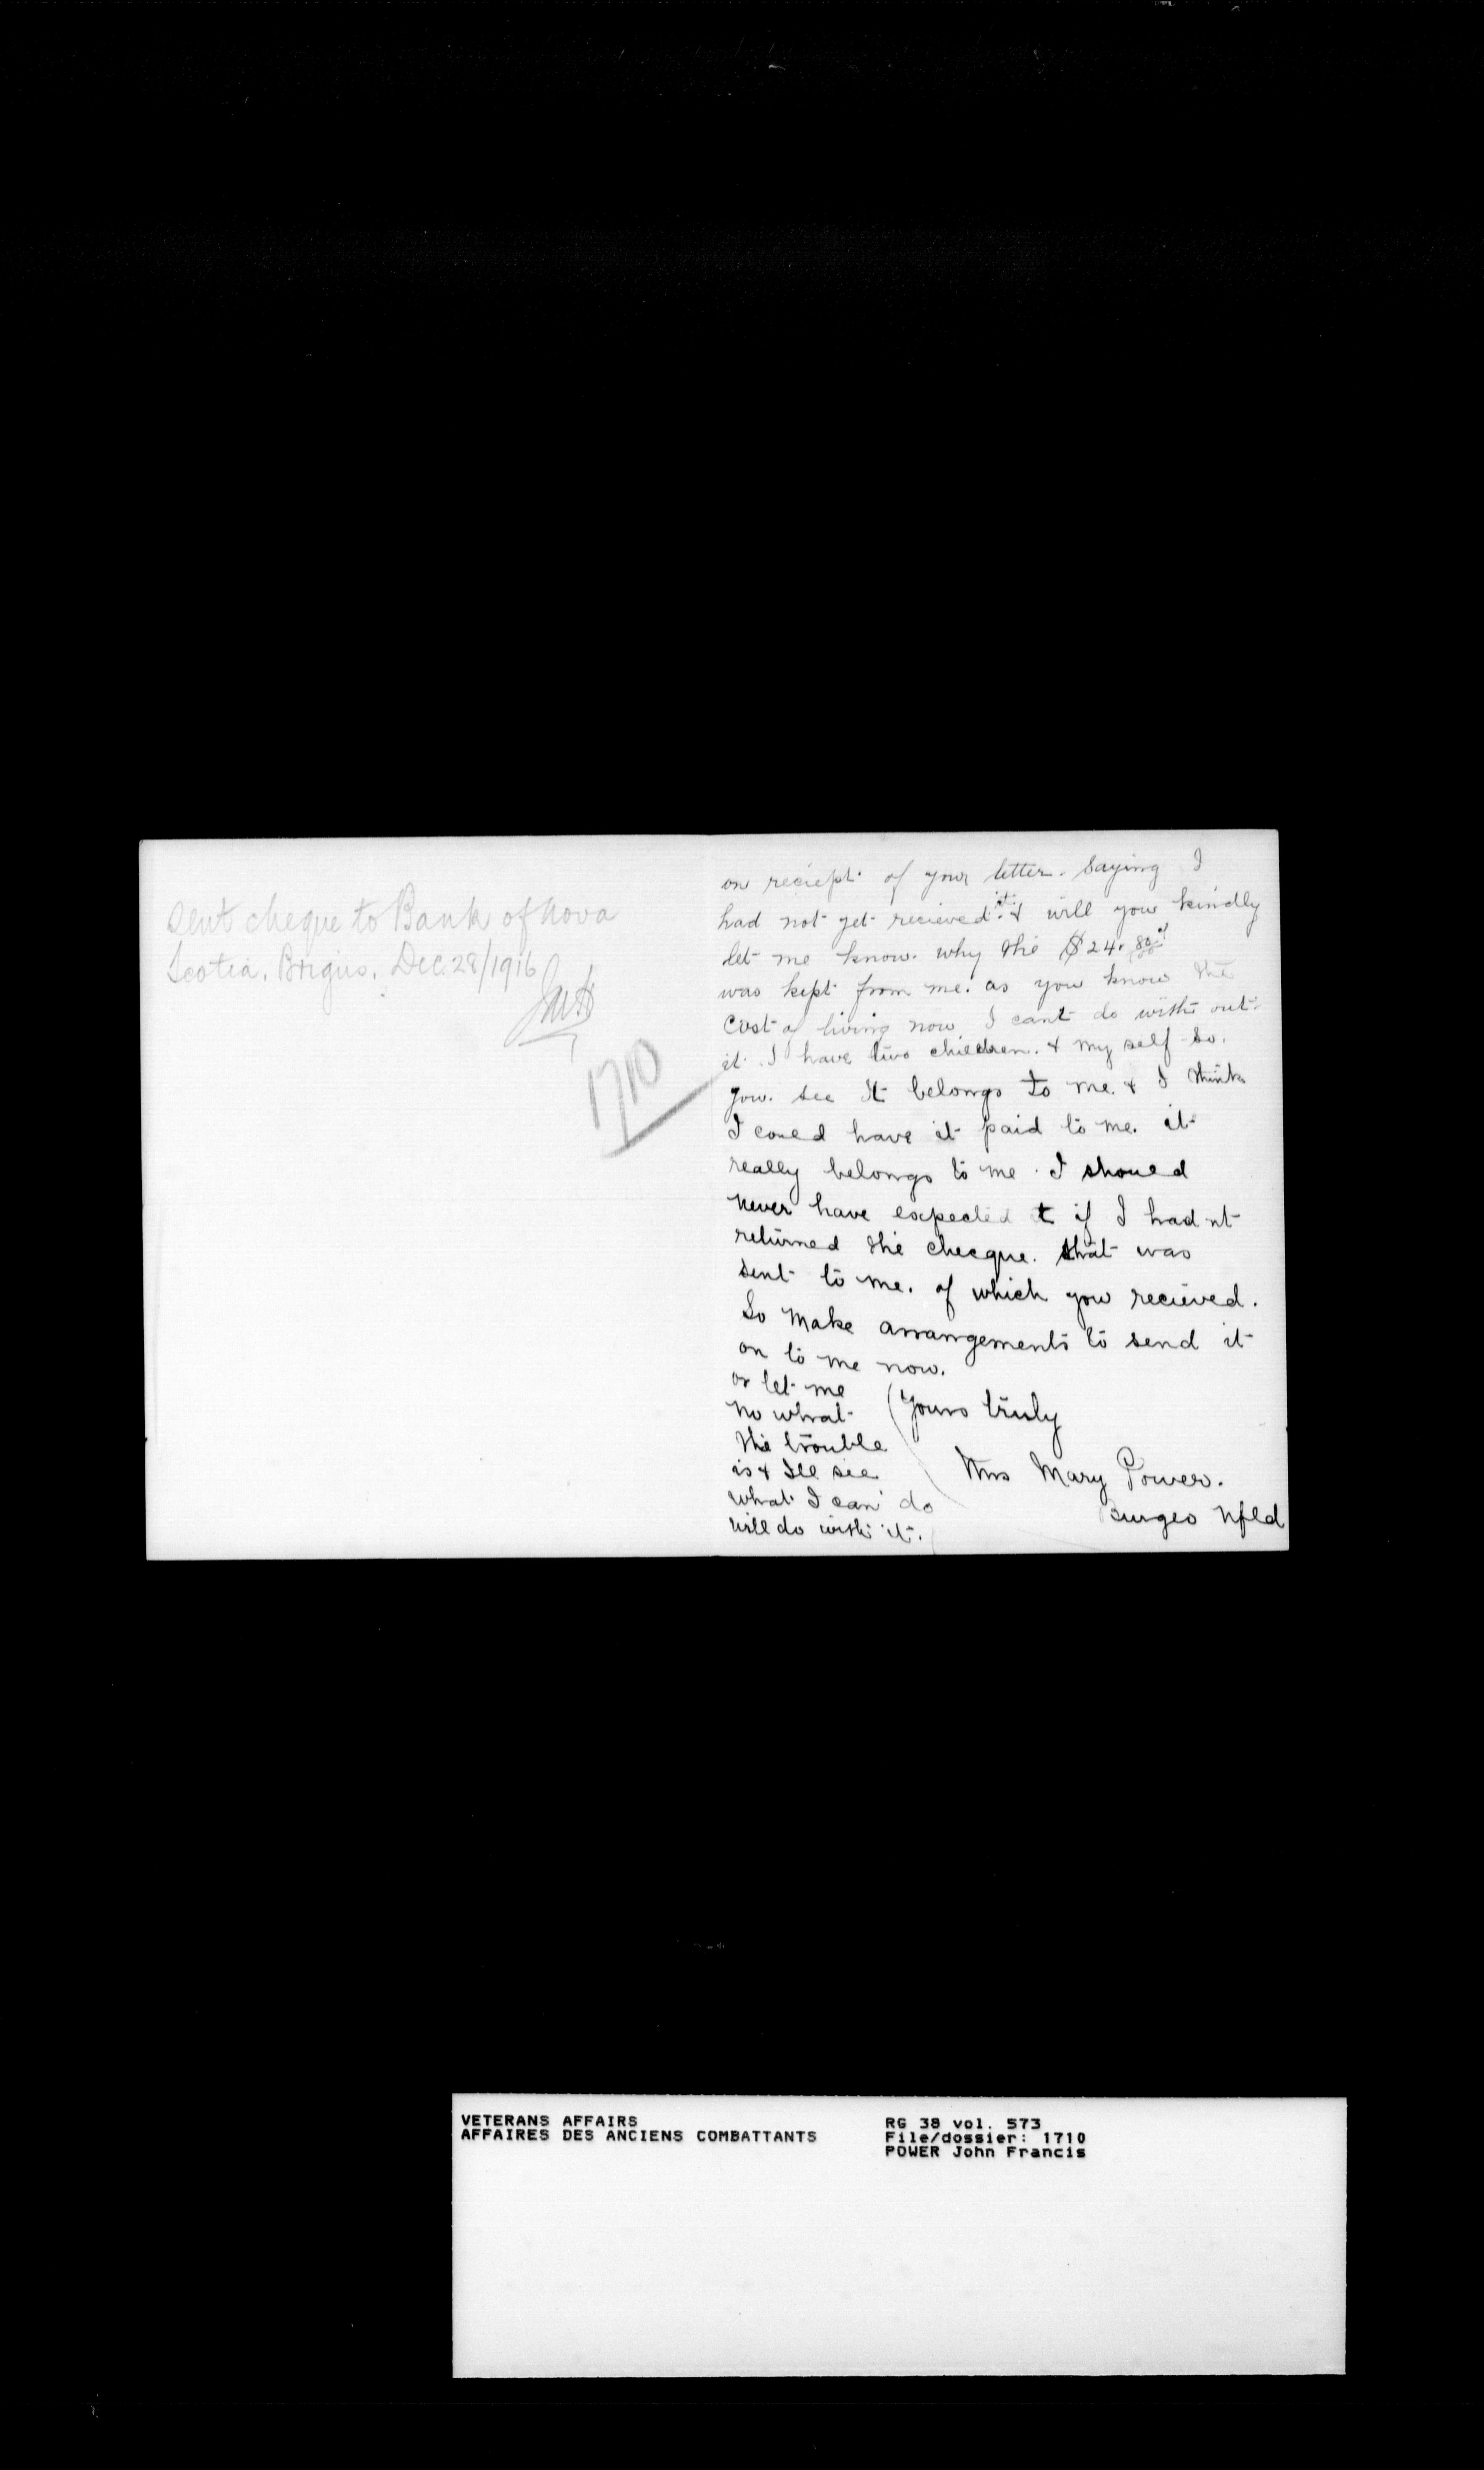 Sent cheque to Bank of Nova
Scotia, Brigus, Dec. 28/1916
1710
on reciept of your letter. Saying I
had not yet recieved it. & will you kindly
let me know. why the $24.80
was kept from me. as you know the
Cost of living now I cant do with out
it. I have two children. & my self so.
you. see it belongs to me. & I think
I coued have it paid to me. it
really belongs to me. I shoued
never have expected it if I had nt
returned the checque. that was
sent to me. of which you recieved.
So make arrangements to send it
on to me now.
or let me
no what
the trouble
is & Ill see
what I can do
will do with it.
Yours truly
Mrs Mary Power.
Burgeo Nfld
VETERANS AFFAIRS
AFFAIRES DES ANCIENS COMBATTANTS
RG 38 vol. 573
File/dossier: 1710
POWER John Francis